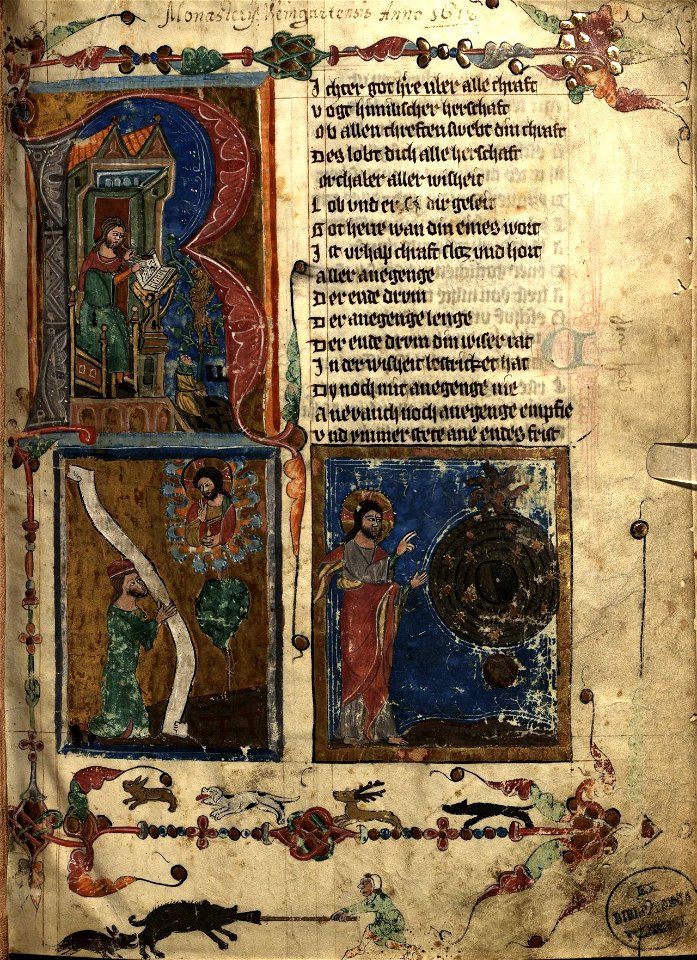 Monasterij Weingartensis Anno
R
Ichter got h're vber alle chraft
Vogt himilischer herschaft
Ob allen chreften swebt din chraft
Des lobt dich alle herschaft
orthaber aller wisheit
Lob vnd er si dir geseit
Got herre wan din eines wort
Ist vrhap chraft sloz vnd hort
aller anegenge
Der ende drvm
Der anegenge lenge
Der ende drvm din wiser rat
In der wisheit bestricket hat
Dv noch nie anegenge nie
noch anegenge empfie
Vnd ymmer stete ane endes frist
EX